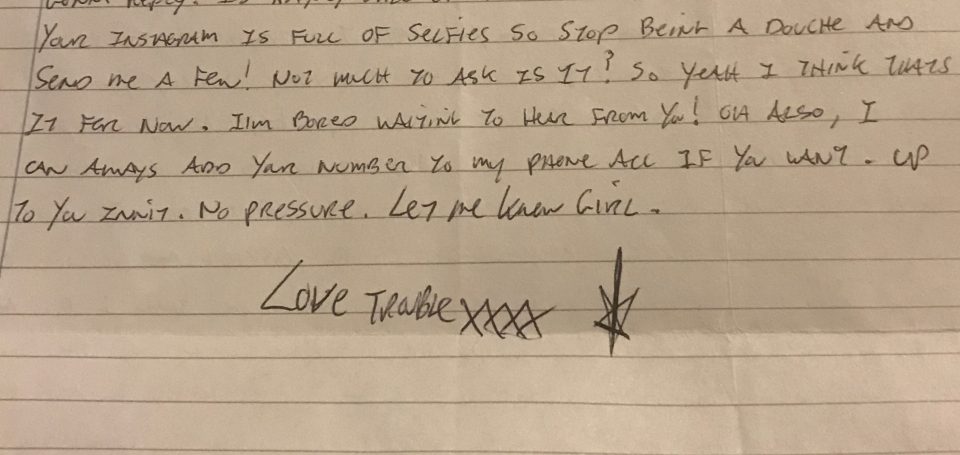 Your Instagram is full of selfies so stop being a douche and
send me a few! Not much to ask is it? So yeah I think thats
it for now. I'm bored waiting to hear from you! Oh also, I
can always add your number to my phone acc if you want. Up
to you innit. No pressure. Let me know girl.
Love Trouble xxxx